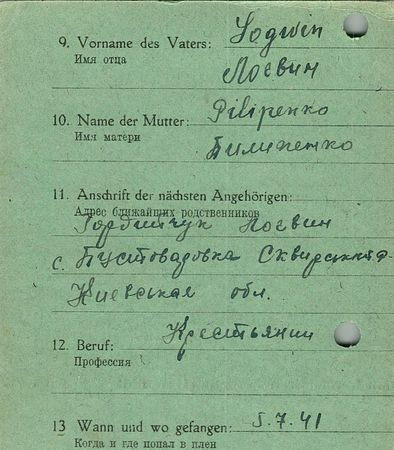 9. Vorname des Vaters: Logwin
Имя отца
Логвин
10. Name der Mutter: Pilipenko
Имя матери
Пилипенко
11. Anschrift der nächsten Angehörigen:
Адрес ближайших родственников
Горбийчук Логвин
с. Пустоваровка Сквирский р-
Киевская обл.
Крестьянин
12. Beruf:
Профессия
13 Wann und wo gefangen: 5.7.41
Когда и где попал в плен